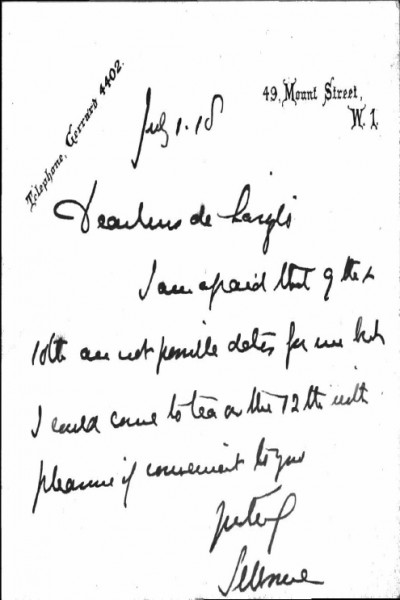 Telephone, Gerrard 4402.
49, Mount Street,
W. 1
July 1. 18
Dear Mrs de
I am afraid that 9th &
10th are not possible dates for me but
I could come to tea on the 12th with
pleasure if convenient to you
Selborne